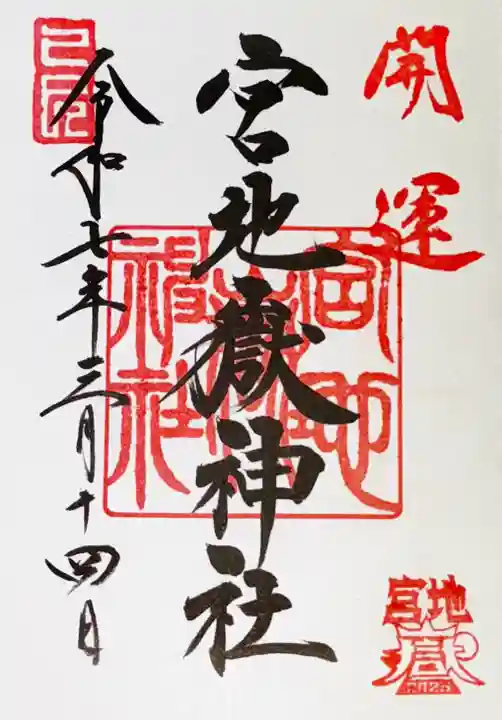 開運
宮地嶽神社
宮地嶽神社
令和七年三月十四日
己巳
宮地
嶽